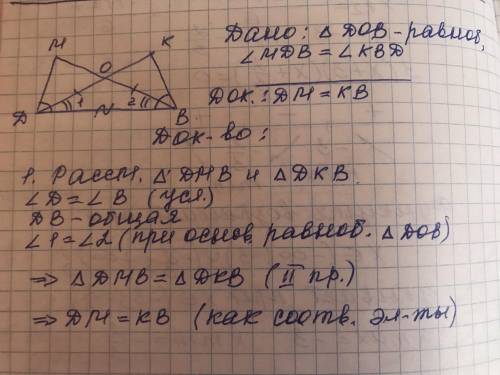 М О К
Д 1 2 В
Дано: △ DOB - равноб,
∠MDB = ∠KBD
Док.: DM = KB
Док-во:
1. Рассм. △ DMB и △ DKB.
∠D = ∠B (усл.)
DB - общая
∠1 = ∠2 (при основ. равноб. △ DOB)
⇒ △ DMB = △ DKB (II пр.)
⇒ DM = KB (как соотв. эл-ты)